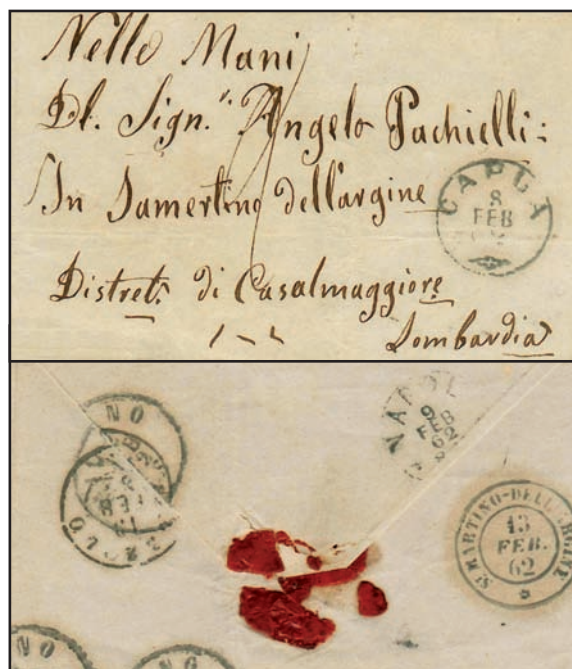 Nelle Mani
Dl. Sign.r Angelo Pachielli:
In Samertino dell'argine
Distret. di Casalmaggiore
Lombardia
CAPUA
8
FEB
NO
FEB
NAPOL
9
FEB
62
St MARTINO-DELL'ARGINE
13
FEB.
62
NO
NO